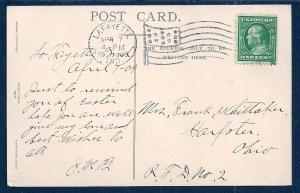 POST CARD.
LAFAYETTE
APR 7
4-PM
IND.
THE ADDRESS ONLY TO BE
WRITTEN HERE.
U.S. POSTAGE
ONE CENT
La Fayette
April 7-09
Just to remind
you of Easter
hope you are well
find my love and
best wishes to
all
J.M.B
Mrs. Frank Whittaker
Harpster
Ohio
R. F. D. No. 2